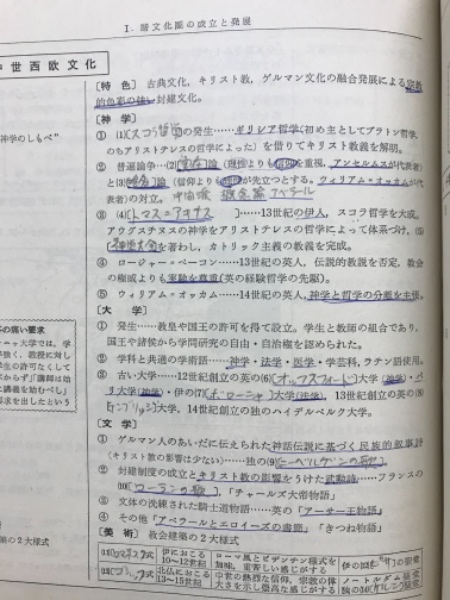 I. 諸文化圏の成立と発展
中世西欧文化
〔特 色〕 古典文化，キリスト教，ゲルマン文化の融合発展による宗教
的色彩の強い封建文化。
〔神 学〕
① (1)〔スコラ哲学〕の発生……ギリシア哲学(初め主としてプラトン哲学，
のちアリストテレスの哲学によった)を借りてキリスト教義を解明。
② 普遍論争…(2)〔実在〕論 (理性よりも信仰を重視，アンセルムスが代表者)
と(3)〔唯名〕論 (信仰よりも理性が先立つとする。ウィリアム＝オッカムが代表
者)の対立。 中間派 概念論 アベラール
③ (4)〔トマス＝アキナス 〕……13世紀の伊人，スコラ哲学を大成。
アウグスチヌスの神学をアリストテレスの哲学によって体系づけ，(5)
〔神学大全〕を著わし，カトリック主義の教義を完成。
④ ロージャー＝ベーコン……13世紀の英人，伝説的教説を否定，教会
の権威よりも実験を尊重(英の経験哲学の先駆)。
⑤ ウィリアム＝オッカム……14世紀の英人，神学と哲学の分離を主張。
〔大 学〕
① 発生……教皇や国王の許可を得て設立。学生と教師の組合であり，
国王や諸侯から学問研究の自由・自治権を認められた。
② 学科と共通の学術語……神学・法学・医学・学芸科，ラテン語使用。
③ 古い大学……12世紀創立の英の(6)〔オックスフォード〕大学(神学)・パ
リ大学(神学)・伊の(7)〔ボローニャ〕大学(法学)，13世紀創立の英の(8)
〔ケンブリッジ〕大学，14世紀創立の独のハイデルベルク大学。
〔文 学〕
① ゲルマン人のあいだに伝えられた神話伝説に基づく民族的叙事詩
(キリスト教の影響は少ない)……独の(9)〔ニーベルンゲンの歌〕
② 封建制度の成立とキリスト教の影響をうけた武勲詩……フランスの
(10)〔ローランの歌〕，「チャールズ大帝物語」
③ 文体の洗練された騎士道物語……英の「アーサー王物語」
④ その他「アベラールとエロイーズの書簡」「きつね物語」
〔美 術〕 教会建築の2大様式
(11)〔ロマネスク〕式 伊におこる 10～12世紀 ローマ風とビザンチン様式を加味，重苦しい感じがする 伊の(12)〔ピサ〕の聖堂
(13)〔ゴシック〕式 北仏におこる 13～15世紀 中世の熱烈な信仰，宗教の偉大さを示し崇高な感じがする ノートルダム聖堂 独の(14)〔ケルン〕聖堂
“神学のしもべ”
の強い要求
ニャ大学では，学
強く，教授に対し
生の許可なくして
からず」「講師は始
義を始むべし」
要求を出したという
築の2大様式